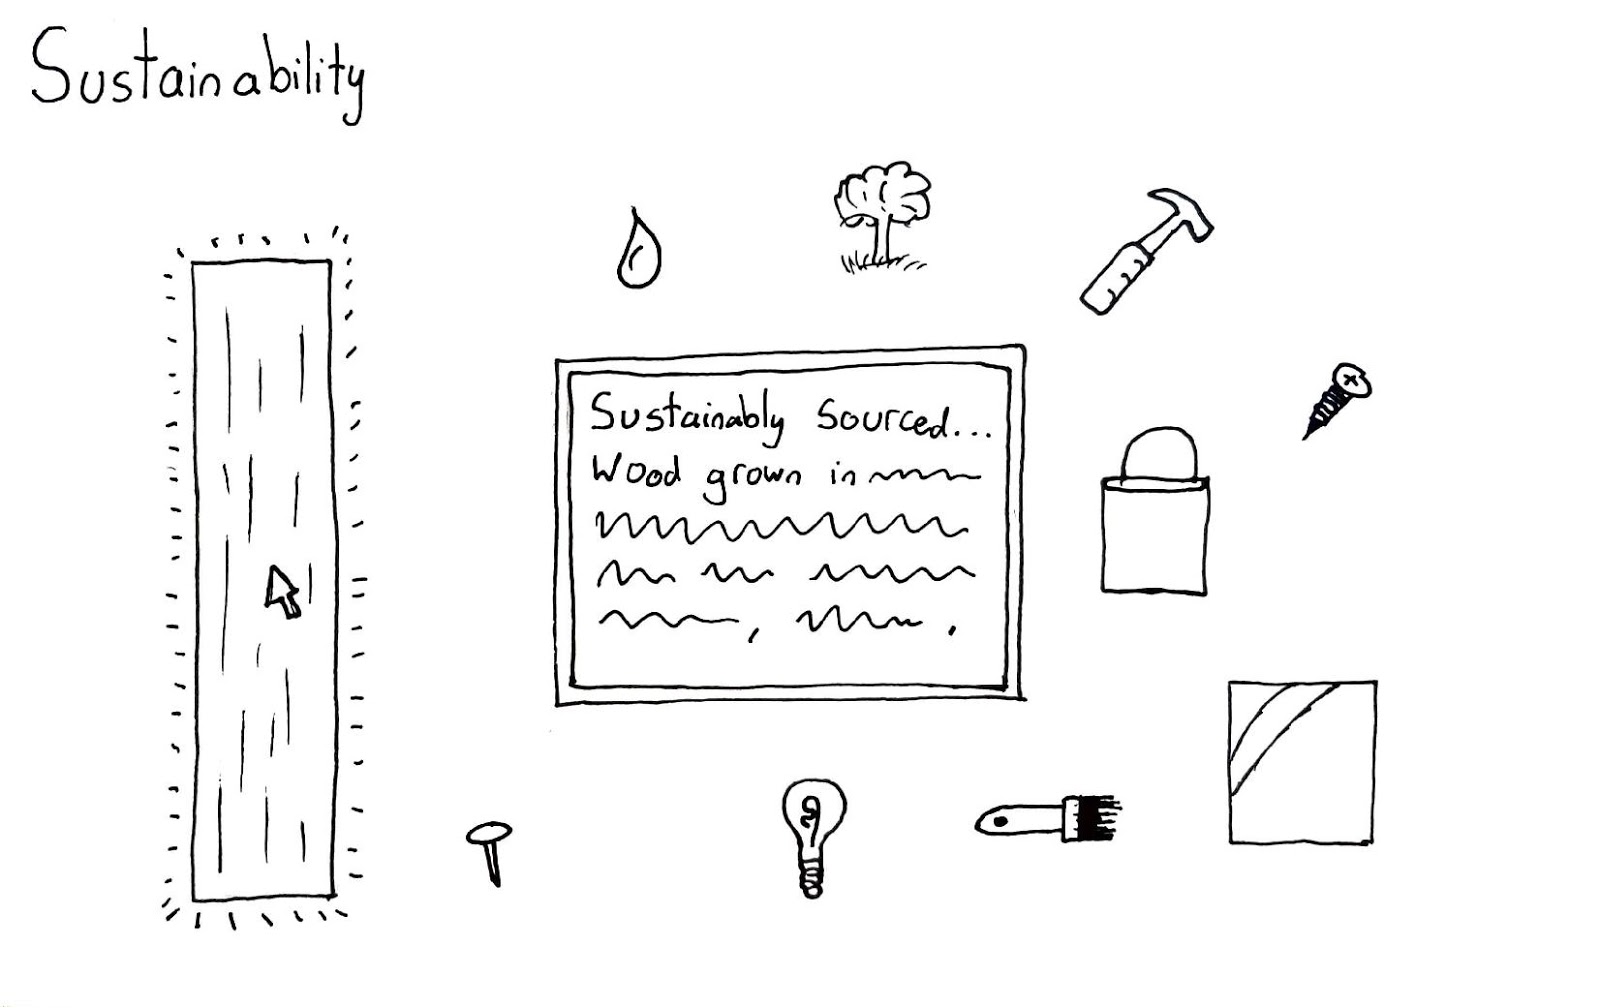 Sustainability
Sustainably Sourced...
Wood grown in